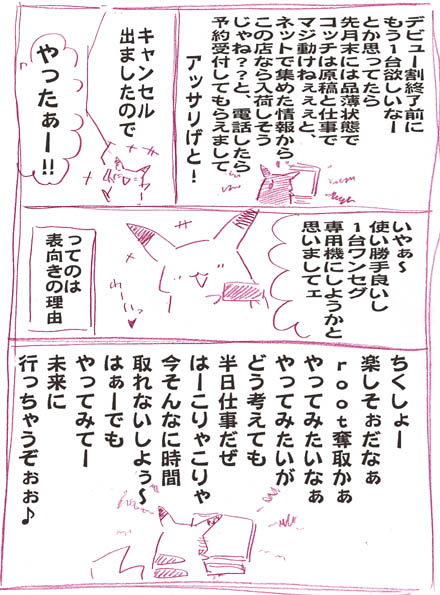 デビュー割終了前に
もう1台欲しいなー
とか思ってたら
先月末には品薄状態で
コッチは原稿と仕事で
マジ動けねぇぇぇと、
ネットで集めた情報から、
この店なら入荷しそう
じゃね？？と、電話したら
予約受付してもらえまして
アッサリげと！
キャンセル
出ましたので
やったぁー!!
いやぁ～
使い勝手良いし
1台ワンセグ
専用機にしようかと
思いましてェ
わーいっ
ってのは
表向きの理由
ちくしょー
楽しそぉだなぁ
root奪取かぁ
やってみたいなぁ
やってみたいが
どう考えても
半日仕事だぜ
はーこりゃこりゃ
今そんなに時間
取れないしょぅ～
はぁーでも
やってみてー
未来に
行っちゃうぞぉぉ♪